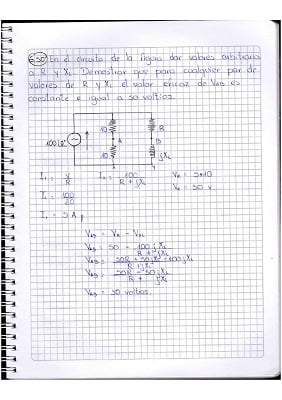 6.30 En el circuito de la figura dar valores arbitrarios
a R y XL. Demostrar que para cualquier par de
valores de R y XL el valor eficaz de VAB es
constante e igual a 50 voltios.
10
R
100|0°
A
B
10
jXL
I1 = V/R I2 = 100/R + jXL VA = 5*10
I1 = 100/20 VA = 50 V
I1 = 5 A
VAB = VA - VXL
VAB = 50 - 100jXL/R + jXL
VAB = 50R + 50jXL - 100jXL/R + jXL
VAB = 50R - 50jXL/R + jXL
VAB = 50 voltios.